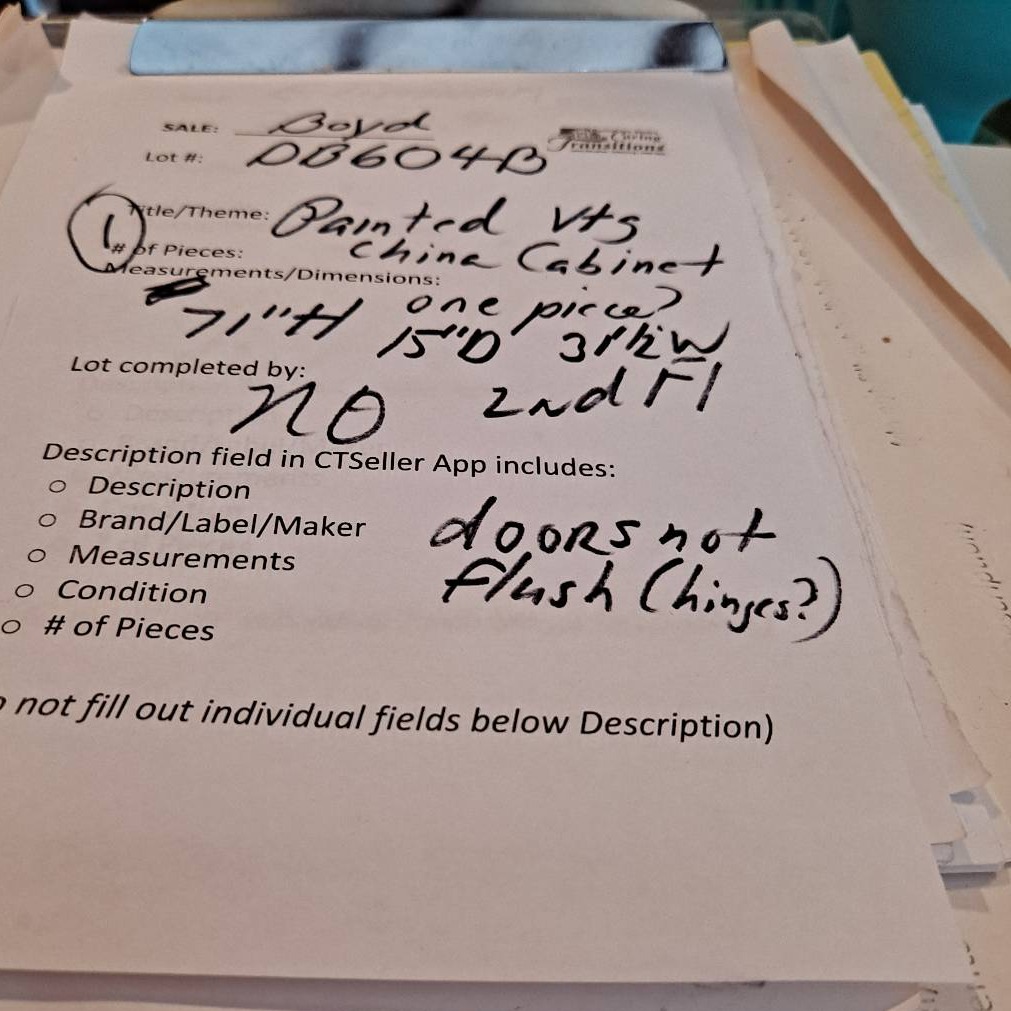 SALE: Boyd
Caring
Transitions
Lot #: DB604B
Title/Theme: Painted Vtg
China Cabinet
1 # of Pieces:
Measurements/Dimensions:
one piece?
71"H 15"D 31½W
Lot completed by:
NO 2nd Fl
Description field in CTSeller App includes:
○ Description
○ Brand/Label/Maker
○ Measurements
○ Condition
○ # of Pieces
doors not
flush (hinges?)
not fill out individual fields below Description)